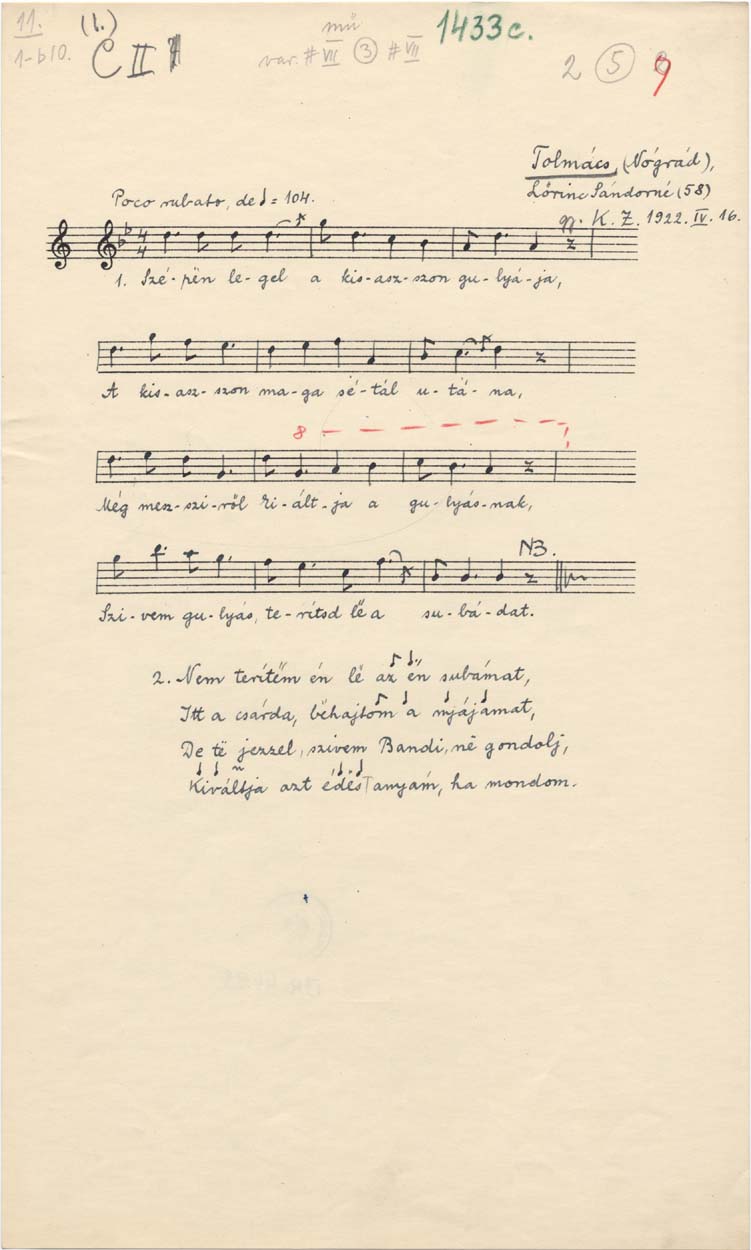 11.
1-b10.
(b.)
C II
mű
var. # VII ③ # VII
1433c.
2 ⑤ 9
Tolmács, (Nógrád),
Lőrinc Sándorné (58)
gy. K. Z. 1922. IV. 16.
Poco rubato, de ♩ = 104.
1. Szé-pën le-gel a kis-asz-szon gu-lyá-ja,
A kis-asz-szon ma-ga sé-tál u-tá-na,
8
Még mesz-szi-ről ki-ált-ja a gu-lyás-nak,
NB.
Szi-vem gu-lyás, te-rítsd lë a su-bá-dat.
2. Nem terítëm én lë az ën subámat,
Itt a csárda, bëhajtom a nyájamat,
De të jezzel, szivem Bandi, në gondolj,
Kiváltja azt édës anyám, ha mondom.